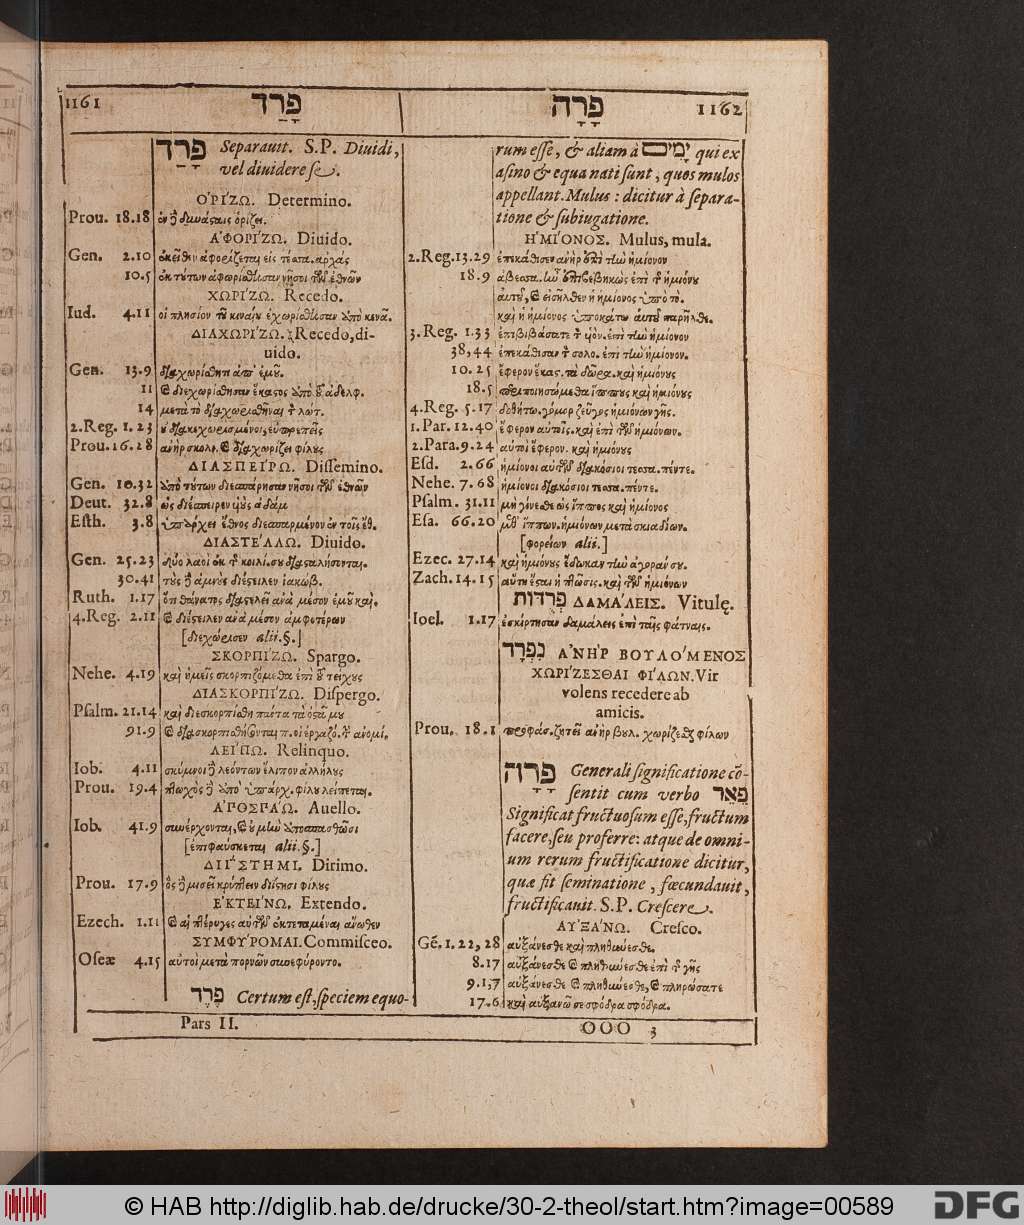 1161 פָּרַד
פָּרָה 1162
פָּרַד Separauit. S.P. Diuidi,
vel diuidere se.
ὉΡΊΖΩ. Determino.
Prou. 18.18 ὁρίζει.
ἈΦΟΡΊΖΩ. Diuido.
Gen. 2.10 ἐκεῖθεν ἀφορίζεται εἰς τέσσα. ἀρχάς
10.5 ἐκ τούτων ἀφωρίσθησαν νῆσοι τῶν ἐθνῶν
ΧΩΡΊΖΩ. Recedo.
Iud. 4.11 οἱ πλησίον τοῦ κιναίου ἐχωρίσθησαν ἀπὸ κενᾶ.
ΔΙΑΧΩΡΊΖΩ. Recedo, di-
uido.
Gen. 13.9 διαχωρίσθητι ἀπ' ἐμοῦ.
11 καὶ διεχωρίσθησαν ἕκαστος ἀπὸ τοῦ ἀδελφ.
14 μετὰ τὸ διαχωρισθῆναι τὸν λωτ.
2.Reg. 1.23 οὐ διακεχωρισμένοι, εὐπρεπεῖς
Prou. 16.28 ἀνὴρ σκολι. καὶ διαχωρίζει φίλους
ΔΙΑΣΠΕΊΡΩ. Dissemino.
Gen. 10.32 ἀπὸ τούτων διεσπάρησαν νῆσοι τῶν ἐθνῶν
Deut. 32.8 ὡς διέσπειρεν υἱοὺς ἀδάμ
Esth. 3.8 ὑπάρχει ἔθνος διεσπαρμένον ἐν τοῖς ἔθ.
ΔΙΑΣΤΈΛΛΩ. Diuido.
Gen. 25.23 δύο λαοὶ ἐκ τῆς κοιλί. σου διασταλήσονται.
30.41 τοὺς δὲ ἀμνοὺς διέστειλεν ἰακώβ.
Ruth. 1.17 ὅτι θάνατος διαστελεῖ ἀνὰ μέσον ἐμοῦ καὶ.
4.Reg. 2.11 καὶ διέστειλεν ἀνὰ μέσον ἀμφοτέρων
[διεχώρισεν alii.§.]
ΣΚΟΡΠΊΖΩ. Spargo.
Nehe. 4.19 καὶ ἡμεῖς σκορπιζόμεθα ἐπὶ τοῦ τείχους
ΔΙΑΣΚΟΡΠΊΖΩ. Dispergo.
Psalm. 21.14 καὶ διεσκορπίσθη πάντα τὰ ὀστᾶ μου
91.9 καὶ διασκορπισθήσονται π. οἱ ἐργαζό. τὴν ἀνομί.
ΛΕΊΠΩ. Relinquo.
Iob. 4.11 σκύμνοι δὲ λεόντων ἔλιπον ἀλλήλους
Prou. 19.4 πτωχὸς δὲ ἀπὸ ὑπάρχ. φίλου λείπεται.
ἈΠΟΣΠΆΩ. Auello.
Iob. 41.9 συνέρχονται, καὶ οὐ μὴ ἀποσπασθῶσι
[ἐπιφαύσκεται alii.§.]
ΔΙΪΣΤΗΜΙ. Dirimo.
Prou. 17.9 ὃς δὲ μισεῖ κρύπτειν διίστησι φίλους
ἘΚΤΕΊΝΩ. Extendo.
Ezech. 1.11 καὶ αἱ πτέρυγες αὐτῶν ἐκτεταμέναι ἄνωθεν
ΣΥΜΦΎΡΟΜΑΙ. Commisceo.
Oseæ 4.15 αὐτοὶ μετὰ πορνῶν συνεφύροντο.
פֶּרֶד Certum est, speciem equo-
rum esse, & aliam à יָמִים qui ex
asino & equa nati sunt, quos mulos
appellant. Mulus: dicitur à separa-
tione & subiugatione.
ἩΜΊΟΝΟΣ. Mulus, mula.
2.Reg. 13.29 ἐπεκάθισεν ἀνὴρ ἐπὶ τὴν ἡμίονον
18.9 ἀβεσσα. ἦν ἐπιβεβηκὼς ἐπὶ τῆς ἡμιόνου
αὐτοῦ, καὶ εἰσῆλθεν ἡ ἡμίονος ὑπὸ τὸ.
καὶ ἡ ἡμίονος ὑποκάτω αὐτοῦ παρῆλθε.
3.Reg. 1.33 ἐπιβιβάσατε τὸν υἱὸν. ἐπὶ τὴν ἡμίονον
38,44 ἐπεκάθισαν τὸν σολο. ἐπὶ τὴν ἡμίονον.
10.25 ἔφερον ἕκας. τὰ δῶρα. καὶ ἡμιόνους
18.5 περιποιησώμεθα ἵππους καὶ ἡμιόνους
4.Reg. 5.17 δοθήτω. γόμορ ζεῦγος ἡμιόνων γῆς.
1.Par. 12.40 ἔφερον αὐτοῖς. καὶ ἐπὶ τῶν ἡμιόνων.
2.Para. 9.24 αὐτοὶ ἔφερον. καὶ ἡμιόνους
Esd. 2.66 ἡμίονοι αὐτῶν διακόσιοι τεσσα. πέντε.
Nehe. 7.68 ἡμίονοι διακόσιοι τεσσα. πέντε.
Psalm. 31.11 μὴ γίνεσθε ὡς ἵππος καὶ ἡμίονος
Esa. 66.20 μεθ' ἵππων. ἡμιόνων μετὰ σκιαδίων.
[φορείων alii.]
Ezec. 27.14 καὶ ἡμιόνους ἔδωκαν τὴν ἀγοράν σου.
Zach. 14.15 αὕτη ἔσται ἡ πτῶσις. καὶ τῶν ἡμιόνων
פְּרֻדוֹת ΔΑΜΆΛΕΙΣ. Vitulę.
Ioel. 1.17 ἐσκίρτησαν δαμάλεις ἐπὶ ταῖς φάτναις.
נִפְרָד ἈΝῊΡ ΒΟΥΛΌΜΕΝΟΣ
ΧΩΡΊΖΕΣΘΑΙ ΦΊΛΩΝ. Vir
volens recedere ab
amicis.
Prou. 18.1 προφάσ. ζητεῖ ἀνὴρ βουλ. χωρίζεσθαι φίλων
פָּרָה Generali significatione cō-
sentit cum verbo פָּאַר
Significat fructuosum esse, fructum
facere, seu proferre: atque de omni-
um rerum fructificatione dicitur,
quæ fit seminatione, fœcundauit,
fructificauit. S.P. Crescere.
ΑΥΞΆΝΩ. Cresco.
Gē. 1.22,28 αὐξάνεσθε καὶ πληθύνεσθε.
8.17 αὐξάνεσθε καὶ πληθύνεσθε ἐπὶ τῆς γῆς
9.1,7 αὐξάνεσθε καὶ πληθύνεσθε, καὶ πληρώσατε
17.6 καὶ αὐξανῶ σε σφόδρα σφόδρα.
Pars II.
OOO 3
© HAB http://diglib.hab.de/drucke/30-2-theol/start.htm?image=00589
DFG